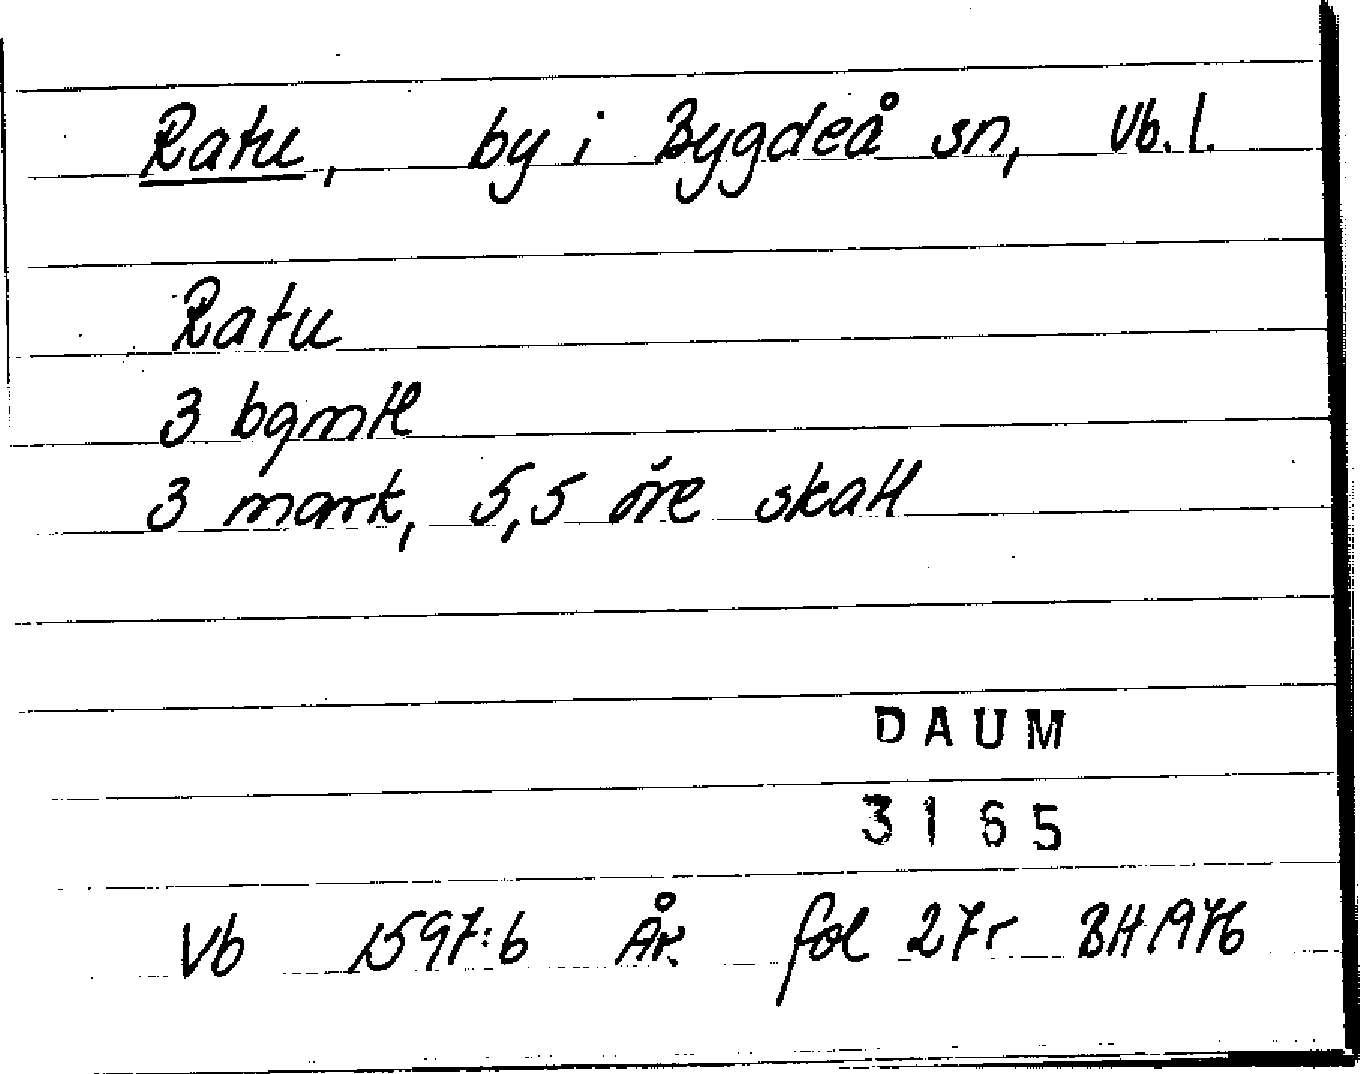 Ratu, by i Bygdeå sn, Vb. l.
Ratu
3 bgmtl
3 mark, 5,5 öre skatt
DAUM
3165
Vb 1597:6 ÅR fol 27r BH 1976